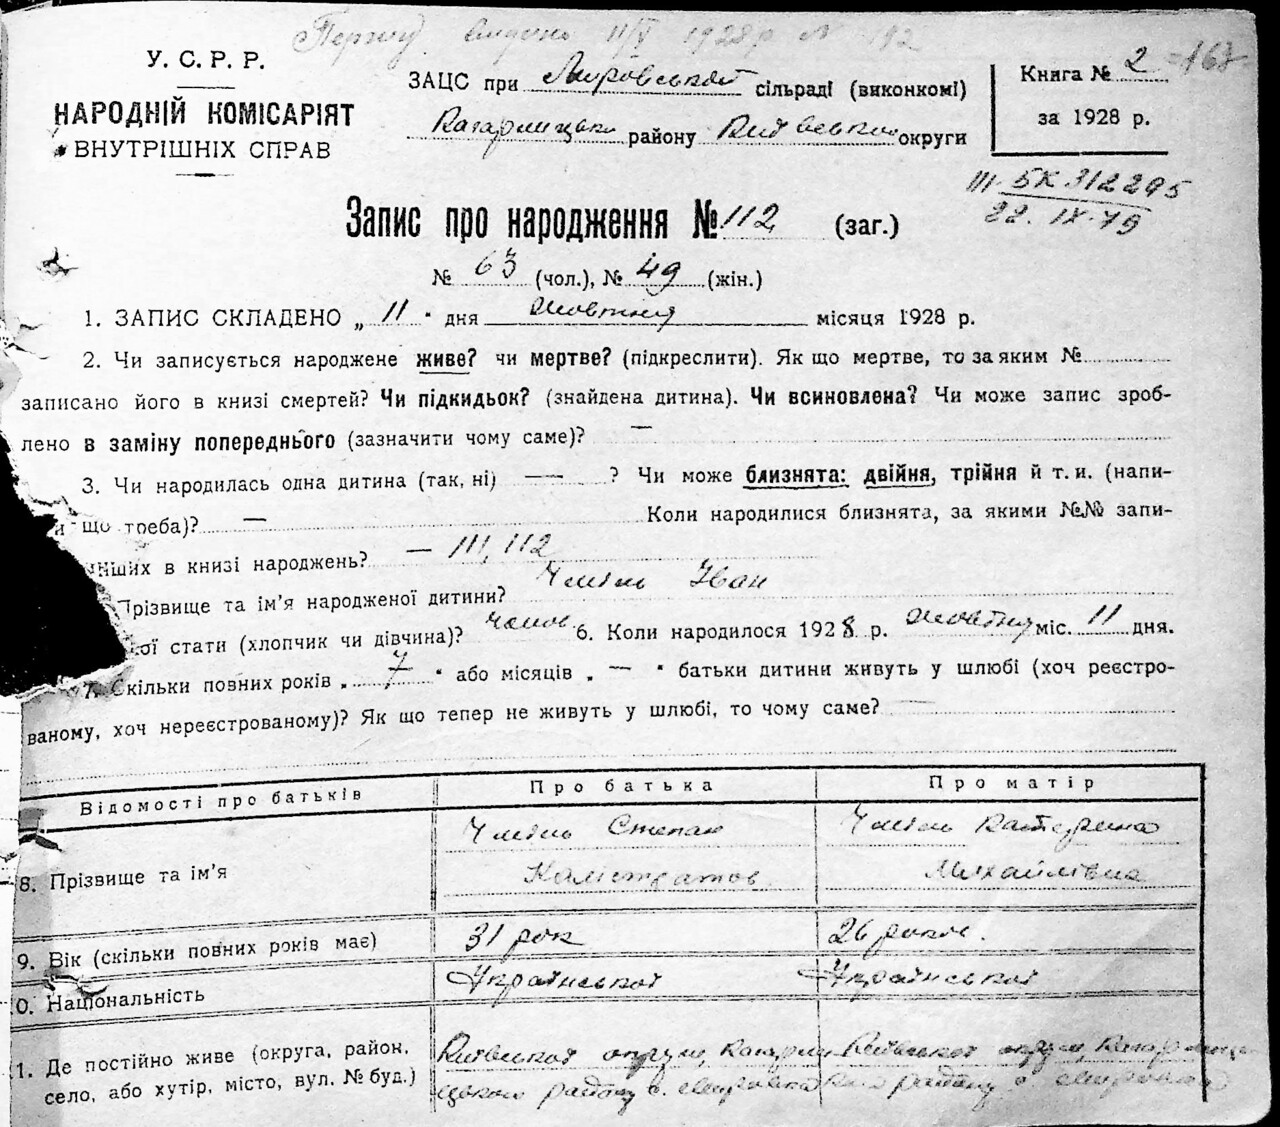 Першу видано 11/V 1928 р N 192
У. С. Р. Р.
НАРОДНІЙ КОМІСАРІЯТ
ВНУТРІШНІХ СПРАВ
ЗАЦС при Мирівської сільраді (виконкомі)
Кагарлицьк району Київської округи
Книга № 2 167
за 1928 р.
III. БК 312295
22. IX. 79
Запис про народження № 112 (заг.)
№ 63 (чол.), № 49 (жін.)
1. ЗАПИС СКЛАДЕНО „ 11 " дня Жовтня місяця 1928 р.
2. Чи записується народжене живе? чи мертве? (підкреслити). Як що мертве, то за яким №
записано його в книзі смертей? Чи підкидьок? (знайдена дитина). Чи всиновлена? Чи може запис зроб-
лено в заміну попереднього (зазначити чому саме)? —
3. Чи народилась одна дитина (так, ні) — ? Чи може близнята: двійня, трійня й т. и. (напи-
и що треба)? — Коли народилися близнята, за якими №№ запи-
нших в книзі народжень? — 111, 112
Прізвище та ім'я народженої дитини? Чміль Іван
кої стати (хлопчик чи дівчина)? чолов. 6. Коли народилося 1928 р. Жовтня міс. 11 дня.
7. Скільки повних років „ 7 " або місяців „ — " батьки дитини живуть у шлюбі (хоч реєстро-
ваному, хоч нереєстрованому)? Як що тепер не живуть у шлюбі, то чому саме? —
Відомості про батьків Про батька Про матір
Чміль Степан Чміль Катерина
8. Прізвище та ім'я Калістратов Михайлівна
9. Вік (скільки повних років має) 31 рок 26 років.
0. Національність Української Української
1. Де постійно живе (округа, район, Київської округи, Кагарли Київської округи Кагарлиць
село, або хутір, місто, вул. № буд.) цького району с. Мирівка кого району с Мирівка